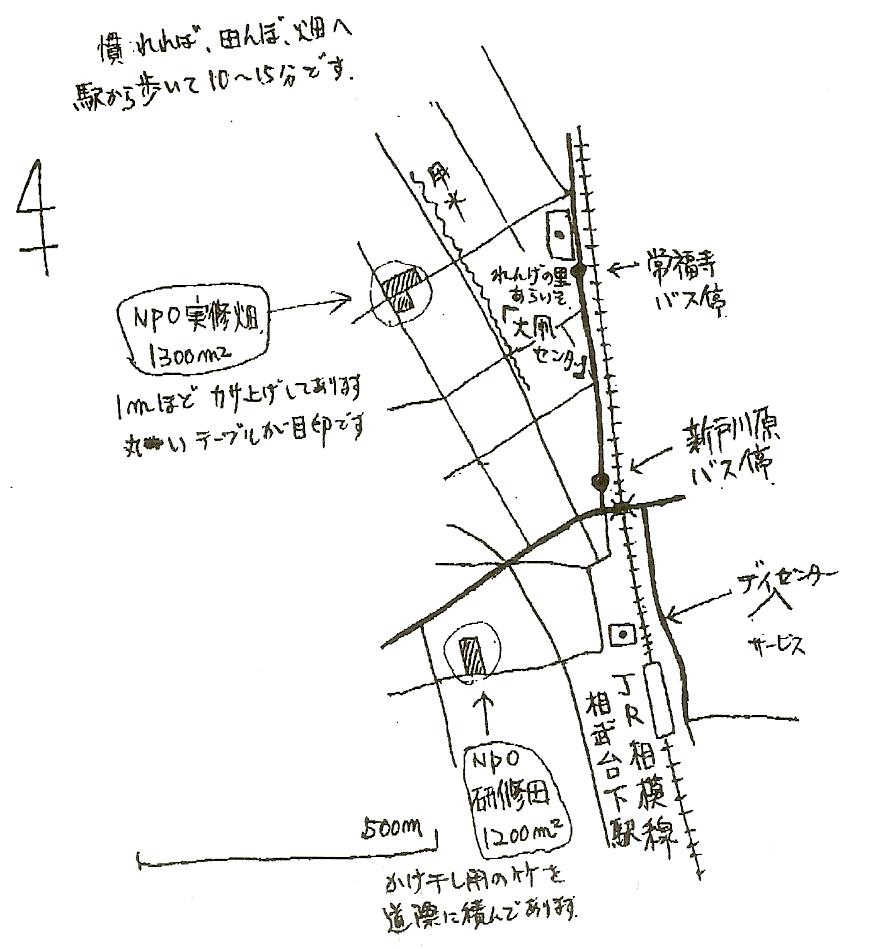 慣れれば、田んぼ、畑へ
駅から歩いて10～15分です.
用水
常福寺
バス停
れんげの里
あらいそ
「大凧
センター」
NPO 実修畑
1300m²
1mほど カサ上げしてあります
丸い テーブルが目印です
新戸川原
バス停
デイセンター
サービス
JR相模線
相武台下駅
NPO
研修田
1200m²
500m
かけ干し用の竹を
道際に積んであります.